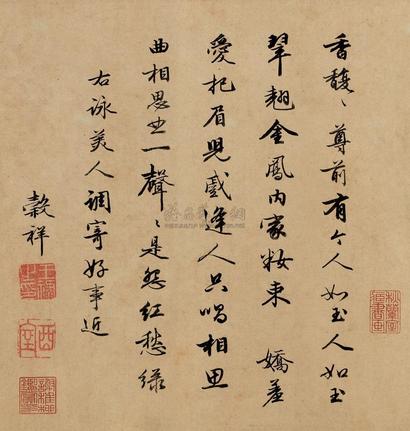 香馥〻尊前有个人如玉人如玉
翠翹金鳳内家粧束　嬌羞
愛把眉兒蹙逢人只唱相思
曲相思曲一聲〻是怨紅愁緑
右詠美人調寄好事近
穀祥
西室